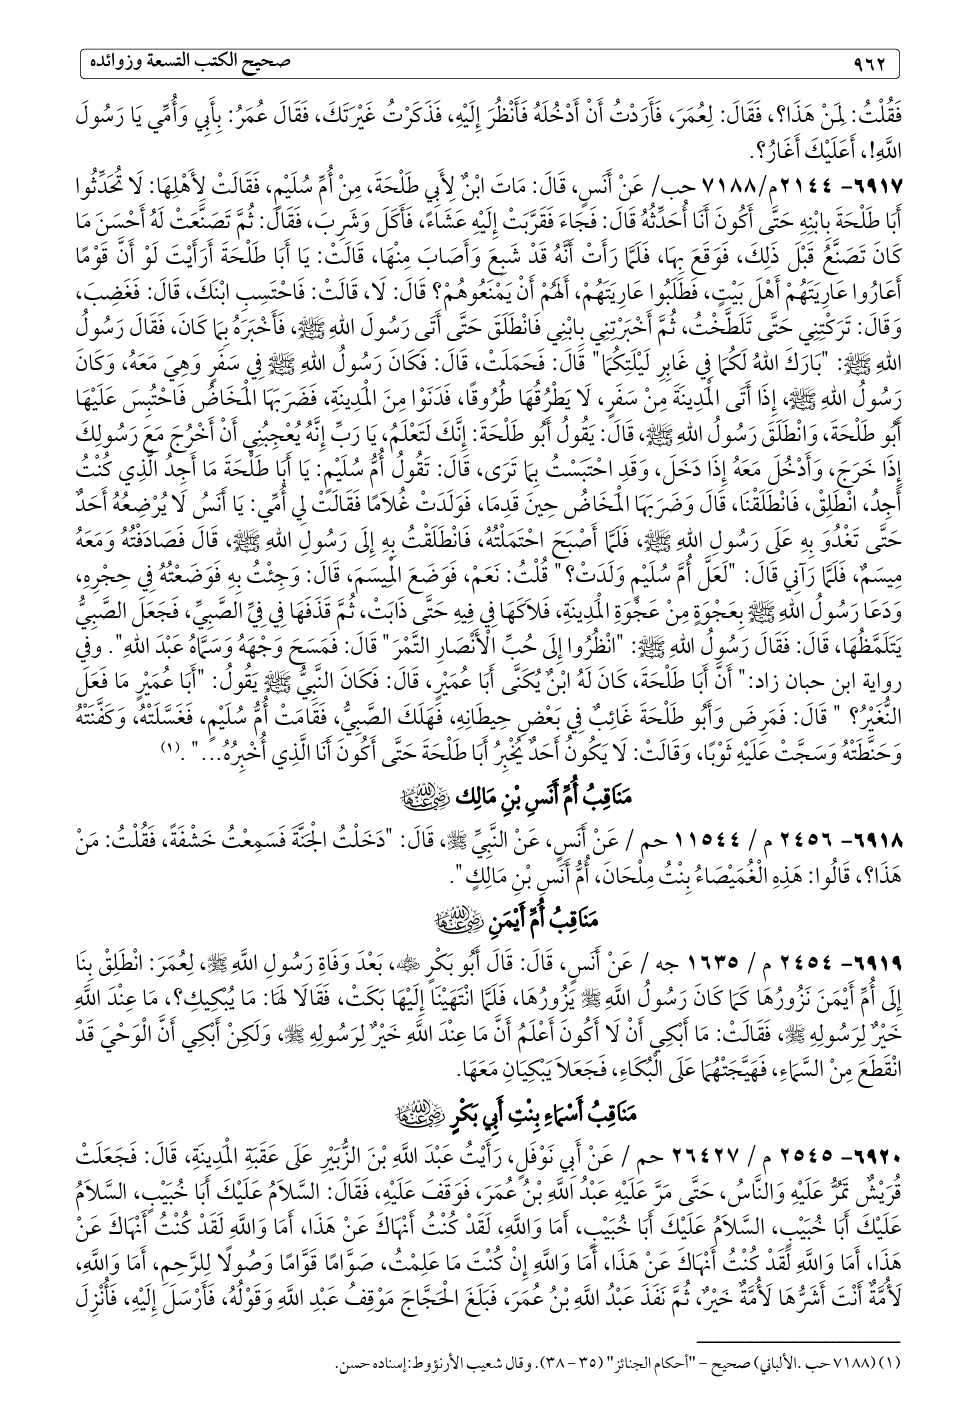 ٩٦٢
صحيح الكتب التسعة وزوائده
فَقُلْتُ: لِمَنْ هَذَا؟، فَقَالَ: لِعُمَرَ، فَأَرَدْتُ أَنْ أَدْخُلَهُ فَأَنْظُرَ إِلَيْهِ، فَذَكَرْتُ غَيْرَتَكَ، فَقَالَ عُمَرُ: بِأَبِي وَأُمِّي يَا رَسُولَ
اللَّهِ!، أَعَلَيْكَ أَغَارُ؟.
٦٩١٧- ٢١٤٤م/٧١٨٨ حب/ عَنْ أَنَسٍ، قَالَ: مَاتَ ابْنٌ لِأَبِي طَلْحَةَ، مِنْ أُمِّ سُلَيْمٍ، فَقَالَتْ لِأَهْلِهَا: لَا تُحَدِّثُوا
أَبَا طَلْحَةَ بِابْنِهِ حَتَّى أَكُونَ أَنَا أُحَدِّثُهُ قَالَ: فَجَاءَ فَقَرَّبَتْ إِلَيْهِ عَشَاءً، فَأَكَلَ وَشَرِبَ، فَقَالَ: ثُمَّ تَصَنَّعَتْ لَهُ أَحْسَنَ مَا
كَانَ تَصَنَّعُ قَبْلَ ذَلِكَ، فَوَقَعَ بِهَا، فَلَمَّا رَأَتْ أَنَّهُ قَدْ شَبِعَ وَأَصَابَ مِنْهَا، قَالَتْ: يَا أَبَا طَلْحَةَ أَرَأَيْتَ لَوْ أَنَّ قَوْمًا
أَعَارُوا عَارِيَتَهُمْ أَهْلَ بَيْتٍ، فَطَلَبُوا عَارِيَتَهُمْ، أَلَهُمْ أَنْ يَمْنَعُوهُمْ؟ قَالَ: لَا، قَالَتْ: فَاحْتَسِبِ ابْنَكَ، قَالَ: فَغَضِبَ،
وَقَالَ: تَرَكْتِنِي حَتَّى تَلَطَّخْتُ، ثُمَّ أَخْبَرْتِنِي بِابْنِي فَانْطَلَقَ حَتَّى أَتَى رَسُولَ اللهِ ﷺ، فَأَخْبَرَهُ بِمَا كَانَ، فَقَالَ رَسُولُ
اللهِ ﷺ: "بَارَكَ اللهُ لَكُمَا فِي غَابِرِ لَيْلَتِكُمَا" قَالَ: فَحَمَلَتْ، قَالَ: فَكَانَ رَسُولُ اللهِ ﷺ فِي سَفَرٍ وَهِيَ مَعَهُ، وَكَانَ
رَسُولُ اللهِ ﷺ، إِذَا أَتَى الْمَدِينَةَ مِنْ سَفَرٍ، لَا يَطْرُقُهَا طُرُوقًا، فَدَنَوْا مِنَ الْمَدِينَةِ، فَضَرَبَهَا الْمَخَاضُ فَاحْتُبِسَ عَلَيْهَا
أَبُو طَلْحَةَ، وَانْطَلَقَ رَسُولُ اللهِ ﷺ، قَالَ: يَقُولُ أَبُو طَلْحَةَ: إِنَّكَ لَتَعْلَمُ، يَا رَبِّ إِنَّهُ يُعْجِبُنِي أَنْ أَخْرُجَ مَعَ رَسُولِكَ
إِذَا خَرَجَ، وَأَدْخُلَ مَعَهُ إِذَا دَخَلَ، وَقَدِ احْتَبَسْتُ بِمَا تَرَى، قَالَ: تَقُولُ أُمُّ سُلَيْمٍ: يَا أَبَا طَلْحَةَ مَا أَجِدُ الَّذِي كُنْتُ
أَجِدُ، انْطَلِقْ، فَانْطَلَقْنَا، قَالَ وَضَرَبَهَا الْمَخَاضُ حِينَ قَدِمَا، فَوَلَدَتْ غُلَامًا فَقَالَتْ لِي أُمِّي: يَا أَنَسُ لَا يُرْضِعُهُ أَحَدٌ
حَتَّى تَغْدُوَ بِهِ عَلَى رَسُولِ اللهِ ﷺ، فَلَمَّا أَصْبَحَ احْتَمَلْتُهُ، فَانْطَلَقْتُ بِهِ إِلَى رَسُولِ اللهِ ﷺ، قَالَ فَصَادَفْتُهُ وَمَعَهُ
مِيسَمٌ، فَلَمَّا رَآنِي قَالَ: "لَعَلَّ أُمَّ سُلَيْمٍ وَلَدَتْ؟" قُلْتُ: نَعَمْ، فَوَضَعَ الْمِيسَمَ، قَالَ: وَجِئْتُ بِهِ فَوَضَعْتُهُ فِي حِجْرِهِ،
وَدَعَا رَسُولُ اللهِ ﷺ بِعَجْوَةٍ مِنْ عَجْوَةِ الْمَدِينَةِ، فَلَاكَهَا فِي فِيهِ حَتَّى ذَابَتْ، ثُمَّ قَذَفَهَا فِي فِيِّ الصَّبِيِّ، فَجَعَلَ الصَّبِيُّ
يَتَلَمَّظُهَا، قَالَ: فَقَالَ رَسُولُ اللهِ ﷺ: "انْظُرُوا إِلَى حُبِّ الْأَنْصَارِ التَّمْرَ" قَالَ: فَمَسَحَ وَجْهَهُ وَسَمَّاهُ عَبْدَ اللهِ". وفي
رواية ابن حبان زاد:" أَنَّ أَبَا طَلْحَةَ، كَانَ لَهُ ابْنٌ يُكَنَّى أَبَا عُمَيْرٍ، قَالَ: فَكَانَ النَّبِيُّ ﷺ يَقُولُ: "أَبَا عُمَيْرٍ مَا فَعَلَ
النُّغَيْرُ؟ " قَالَ: فَمَرِضَ وَأَبُو طَلْحَةَ غَائِبٌ فِي بَعْضِ حِيطَانِهِ، فَهَلَكَ الصَّبِيُّ، فَقَامَتْ أُمُّ سُلَيْمٍ، فَغَسَّلَتْهُ، وَكَفَّنَتْهُ
وَحَنَّطَتْهُ وَسَجَّتْ عَلَيْهِ ثَوْبًا، وَقَالَتْ: لَا يَكُونُ أَحَدٌ يُخْبِرُ أَبَا طَلْحَةَ حَتَّى أَكُونَ أَنَا الَّذِي أُخْبِرُهُ... ".(١)
مَنَاقِبُ أُمِّ أَنَسِ بْنِ مَالِك رضي الله عنها
٦٩١٨- ٢٤٥٦ م / ١١٥٤٤ حم / عَنْ أَنَسٍ، عَنْ النَّبِيِّ ﷺ، قَالَ: "دَخَلْتُ الْجَنَّةَ فَسَمِعْتُ خَشْفَةً، فَقُلْتُ: مَنْ
هَذَا؟، قَالُوا: هَذِهِ الْغُمَيْصَاءُ بِنْتُ مِلْحَانَ، أُمُّ أَنَسِ بْنِ مَالِكٍ".
مَنَاقِبُ أُمِّ أَيْمَنِ رضي الله عنها
٦٩١٩- ٢٤٥٤ م / ١٦٣٥ جه / عَنْ أَنَسٍ، قَالَ: قَالَ أَبُو بَكْرٍ رضي الله عنه، بَعْدَ وَفَاةِ رَسُولِ اللَّهِ ﷺ، لِعُمَرَ: انْطَلِقْ بِنَا
إِلَى أُمِّ أَيْمَنَ نَزُورُهَا كَمَا كَانَ رَسُولُ اللَّهِ ﷺ يَزُورُهَا، فَلَمَّا انْتَهَيْنَا إِلَيْهَا بَكَتْ، فَقَالَا لَهَا: مَا يُبْكِيكِ؟، مَا عِنْدَ اللَّهِ
خَيْرٌ لِرَسُولِهِ ﷺ، فَقَالَتْ: مَا أَبْكِي أَنْ لَا أَكُونَ أَعْلَمُ أَنَّ مَا عِنْدَ اللَّهِ خَيْرٌ لِرَسُولِهِ ﷺ، وَلَكِنْ أَبْكِي أَنَّ الْوَحْيَ قَدْ
انْقَطَعَ مِنْ السَّمَاءِ، فَهَيَّجَتْهُمَا عَلَى الْبُكَاءِ، فَجَعَلَا يَبْكِيَانِ مَعَهَا.
مَنَاقِبُ أَسْمَاءِ بِنْتِ أَبِي بَكْرٍ رضي الله عنها
٦٩٢٠- ٢٥٤٥ م / ٢٦٤٢٧ حم / عَنْ أَبِي نَوْفَلٍ، رَأَيْتُ عَبْدَ اللَّهِ بْنَ الزُّبَيْرِ عَلَى عَقَبَةِ الْمَدِينَةِ، قَالَ: فَجَعَلَتْ
قُرَيْشٌ تَمُرُّ عَلَيْهِ وَالنَّاسُ، حَتَّى مَرَّ عَلَيْهِ عَبْدُ اللَّهِ بْنُ عُمَرَ، فَوَقَفَ عَلَيْهِ، فَقَالَ: السَّلَامُ عَلَيْكَ أَبَا خُبَيْبٍ، السَّلَامُ
عَلَيْكَ أَبَا خُبَيْبٍ، السَّلَامُ عَلَيْكَ أَبَا خُبَيْبٍ، أَمَا وَاللَّهِ، لَقَدْ كُنْتُ أَنْهَاكَ عَنْ هَذَا، أَمَا وَاللَّهِ لَقَدْ كُنْتُ أَنْهَاكَ عَنْ
هَذَا، أَمَا وَاللَّهِ لَقَدْ كُنْتُ أَنْهَاكَ عَنْ هَذَا، أَمَا وَاللَّهِ إِنْ كُنْتَ مَا عَلِمْتُ، صَوَّامًا قَوَّامًا وَصُولًا لِلرَّحِمِ، أَمَا وَاللَّهِ،
لَأُمَّةٌ أَنْتَ أَشَرُّهَا لَأُمَّةٌ خَيْرٌ، ثُمَّ نَفَذَ عَبْدُ اللَّهِ بْنُ عُمَرَ، فَبَلَغَ الْحَجَّاجَ مَوْقِفُ عَبْدِ اللَّهِ وَقَوْلُهُ، فَأَرْسَلَ إِلَيْهِ، فَأُنْزِلَ
(١) (٧١٨٨ حب .الألباني) صحيح – "أحكام الجنائز" (٣٥ – ٣٨). وقال شعيب الأرنؤوط: إسناده حسن.